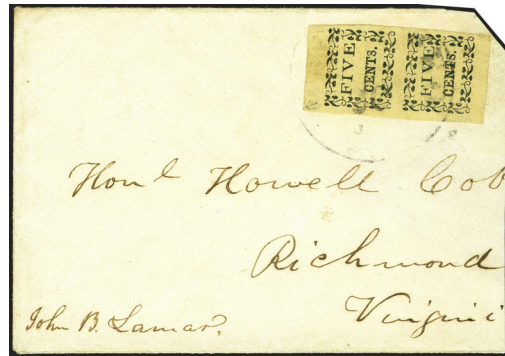 FIVE CENTS. FIVE CENTS.
3
Honl Howell Cob
Richmond
Virgini
John B. Lamar.